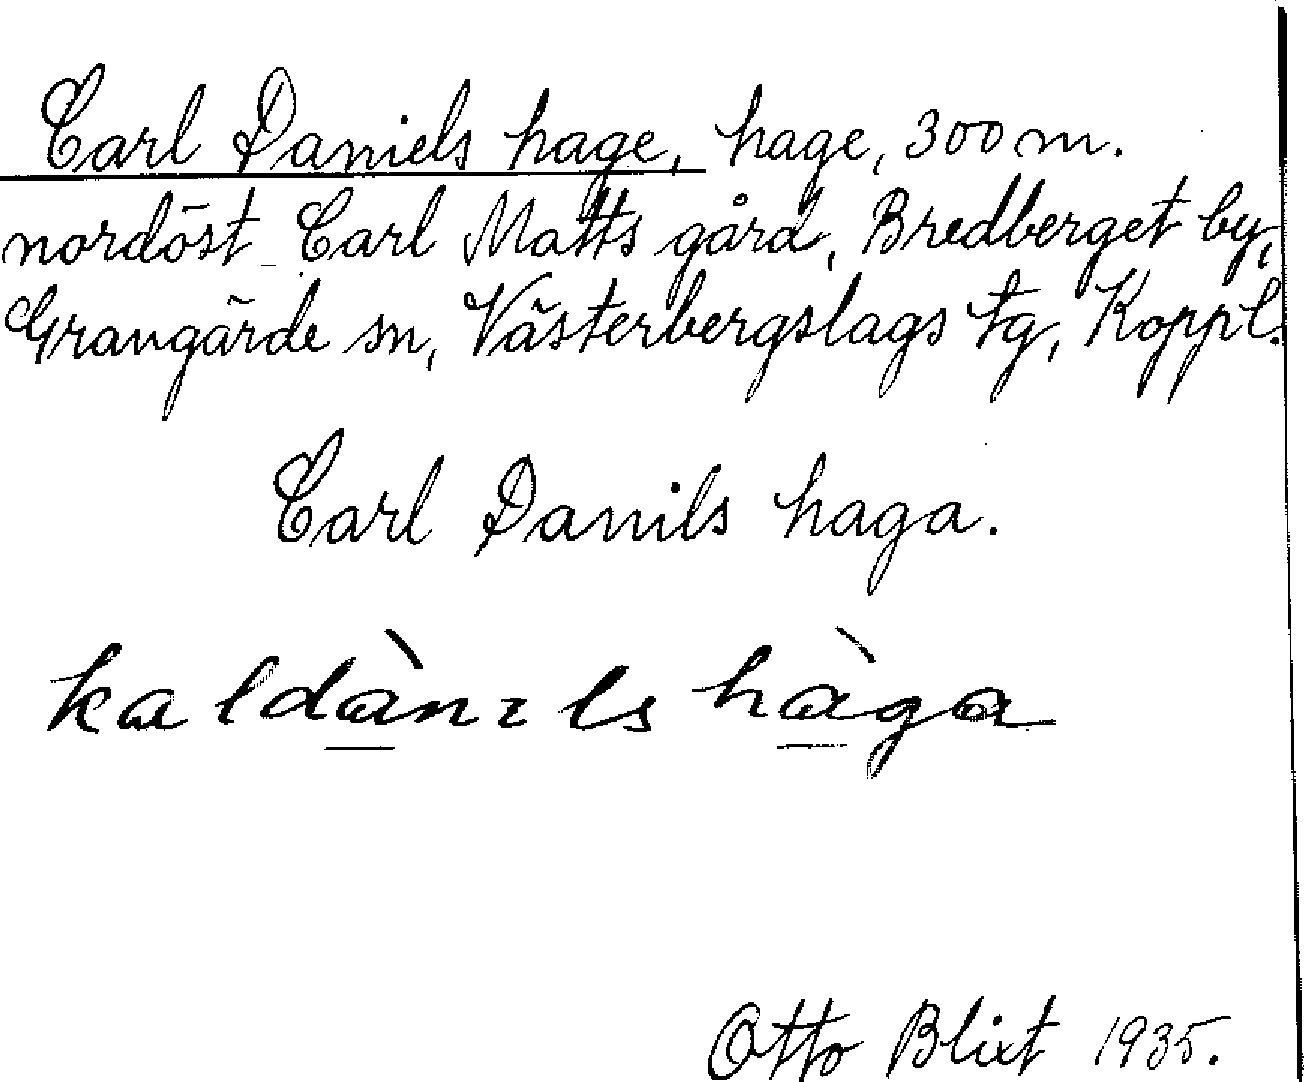 Carl Daniels hage, hage, 300 m.
nordöst Carl Matts gård, Bredberget by,
Grangärde sn, Västerbergslags tg, Koppl.
Carl Danils haga.
kaldànɪls hàga
Otto Blixt 1935.